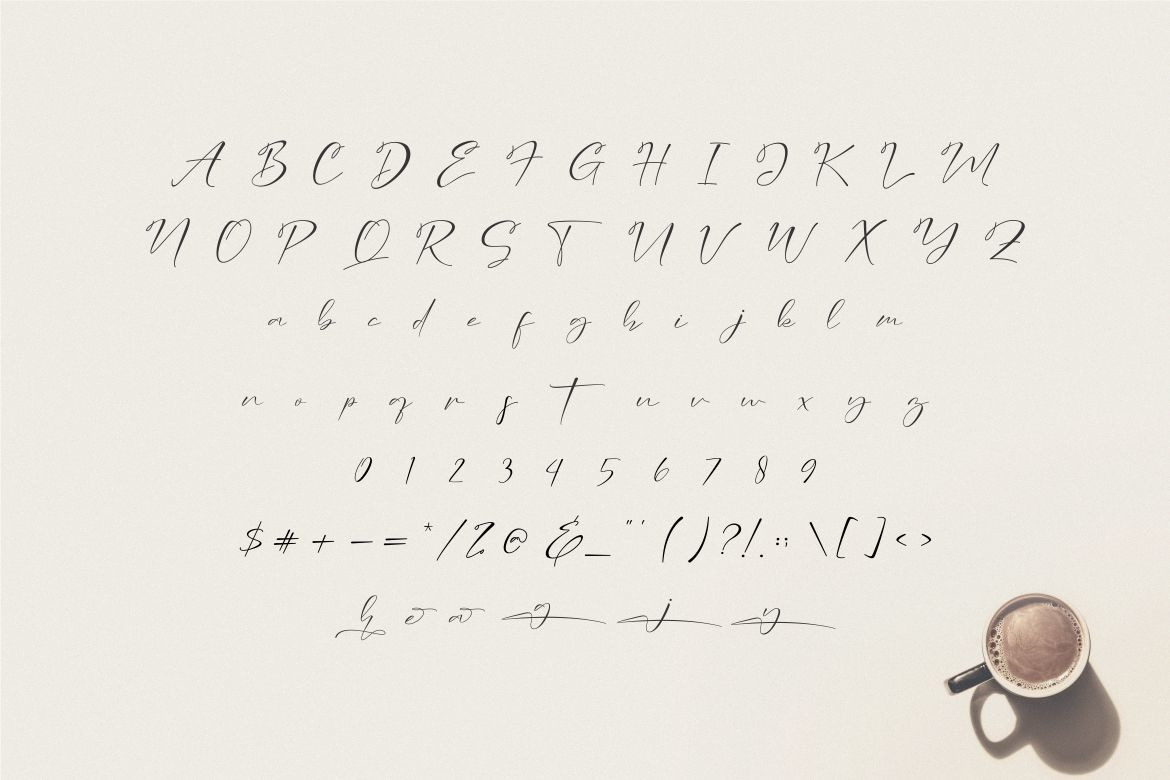 A B C D E F G H I J K L M
N O P Q R S T U V W X Y Z
a b c d e f g h i j k l m
n o p q r s t u v w x y z
0 1 2 3 4 5 6 7 8 9
$ # + - = * / % @ & _ " ' ( ) ? ! . : ; \ [ ] < >
k o a g j y